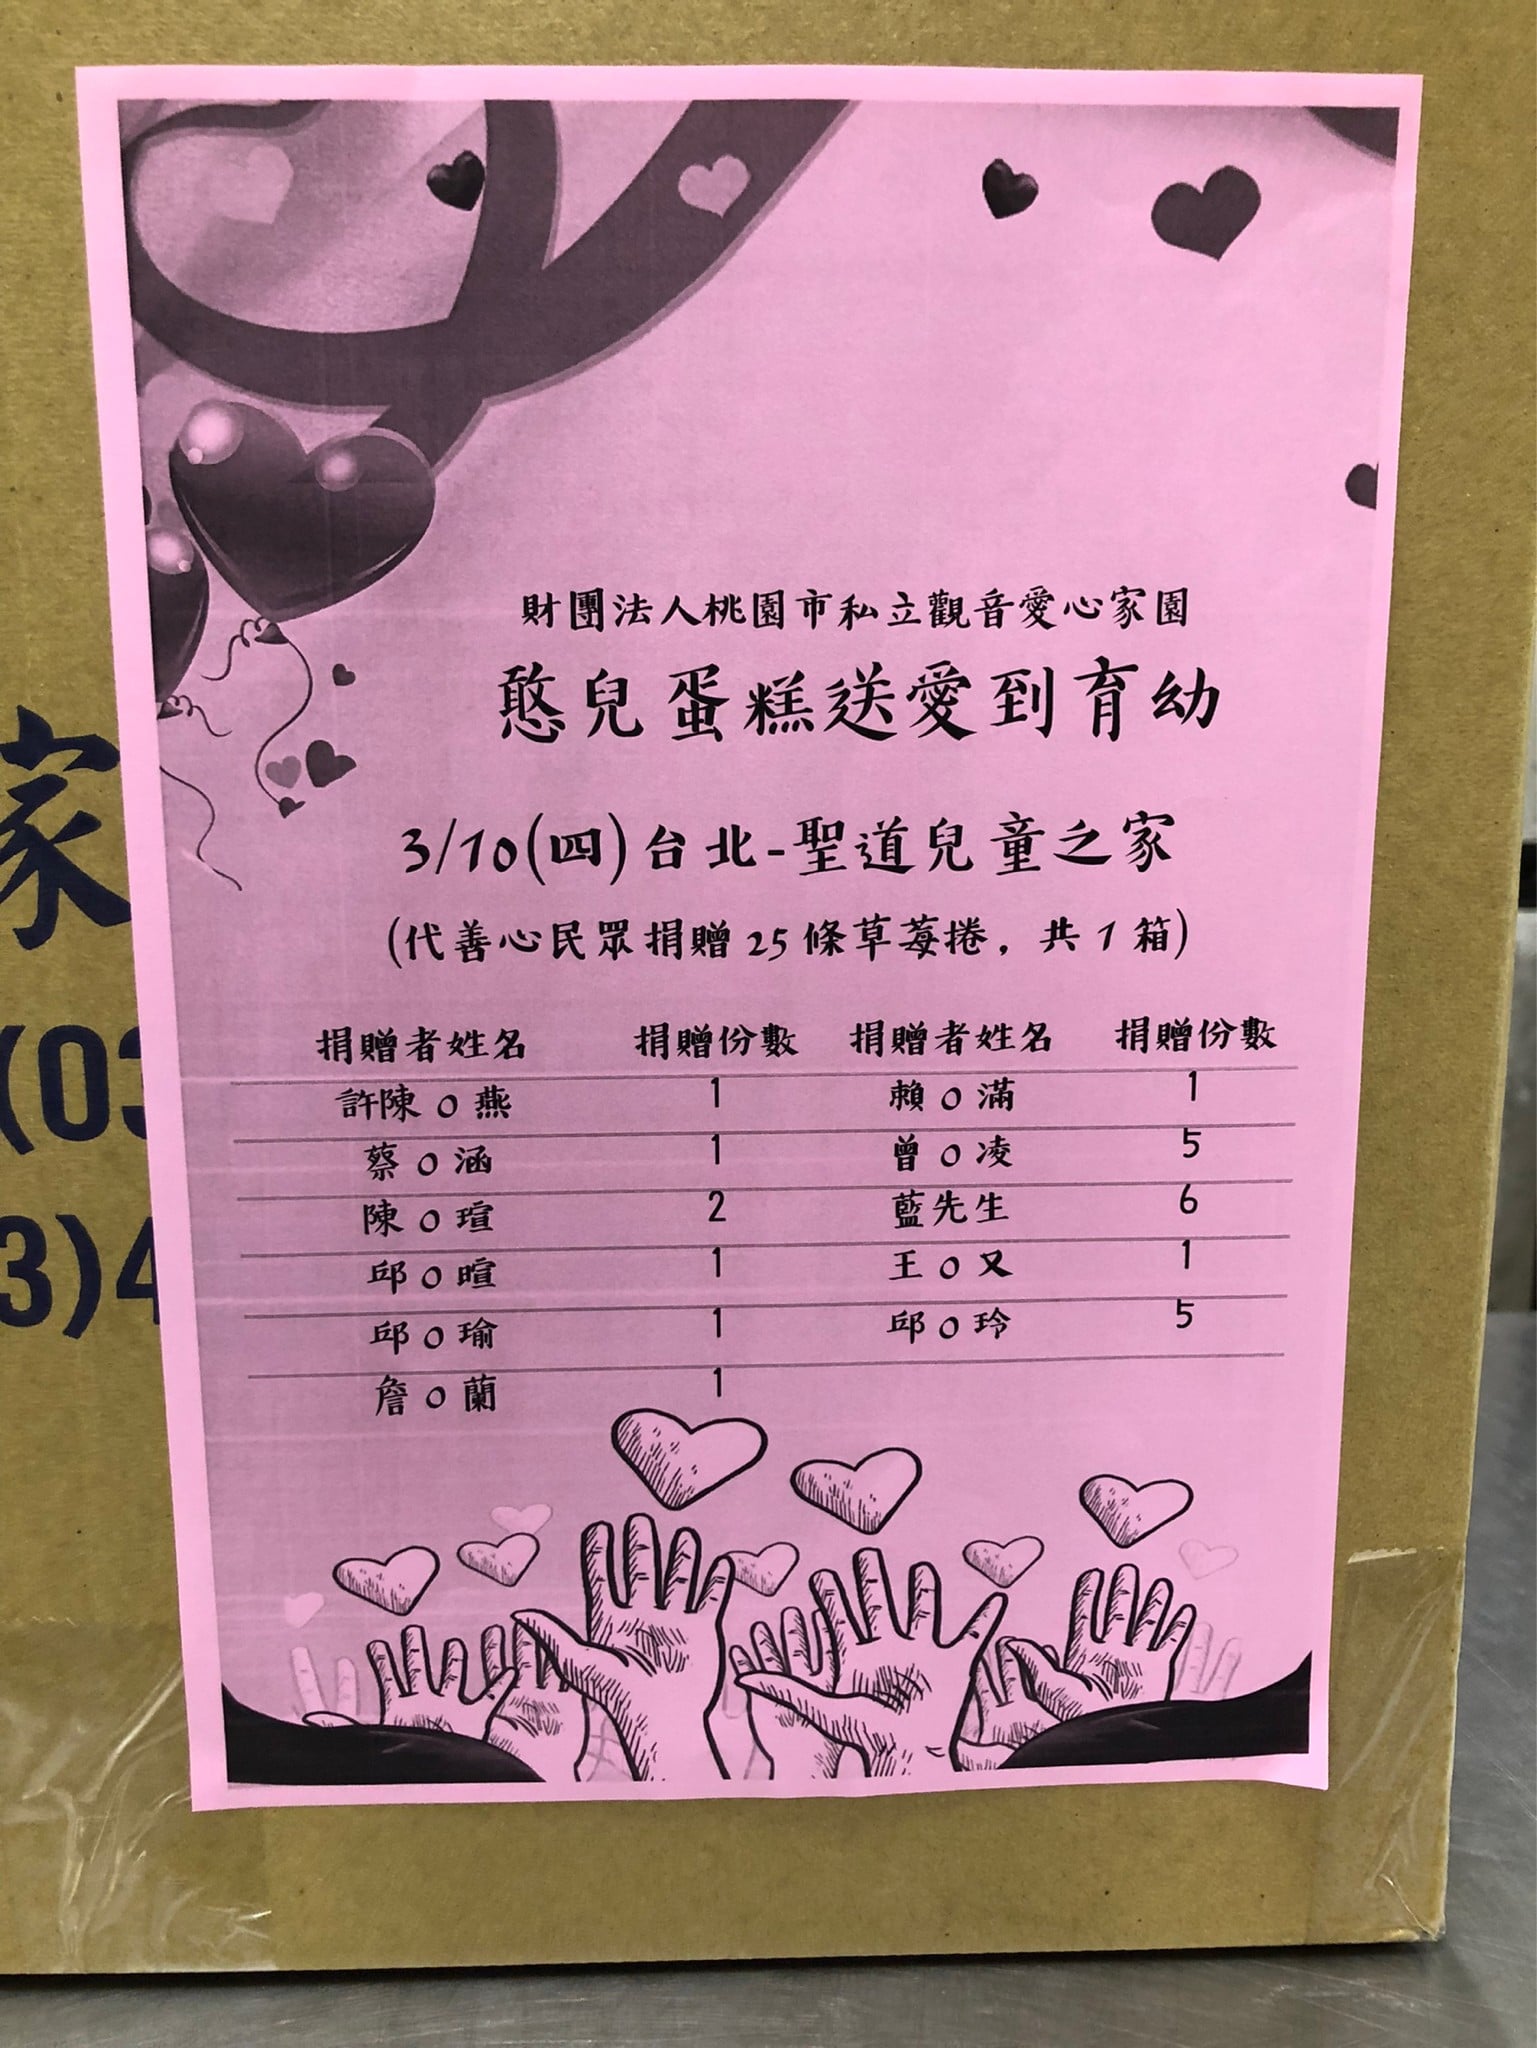 財團法人桃園市私立觀音愛心家園
憨兒蛋糕送愛到育幼
3/10(四)台北-聖道兒童之家
(代善心民眾捐贈25條草莓捲，共1箱)
捐贈者姓名 捐贈份數 捐贈者姓名 捐贈份數
許陳O燕 1 賴O滿 1
蔡O涵 1 曾O凌 5
陳O瑄 2 藍先生 6
邱O暄 1 王O又 1
邱O瑜 1 邱O玲 5
詹O蘭 1
家
(03
3)4